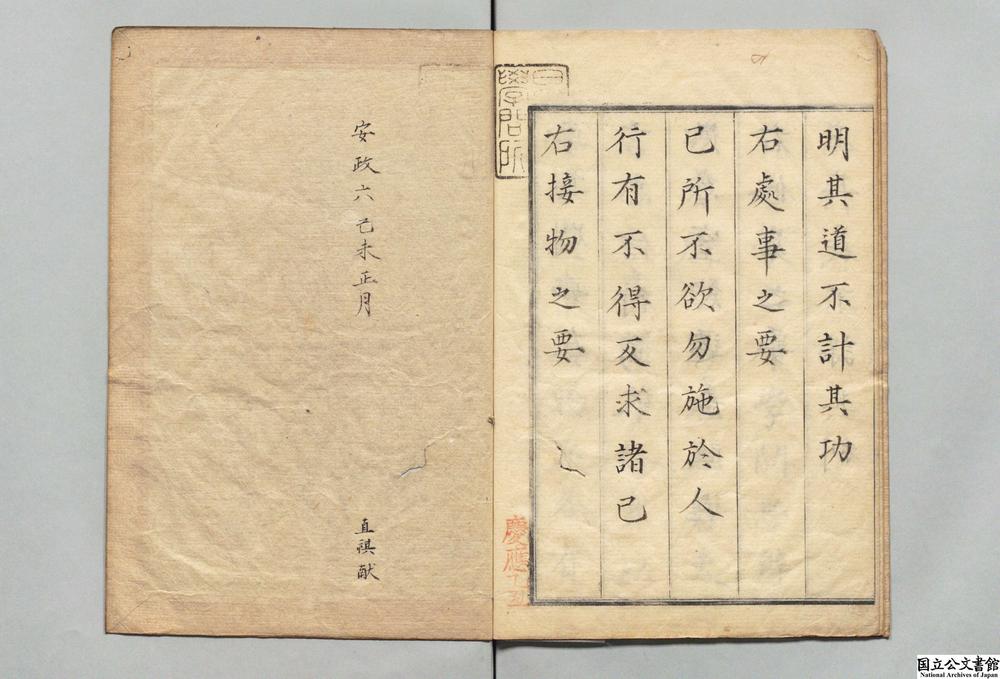 明其道不計其功
右處事之要
已所不欲勿施於人
行有不得反求諸已
右接物之要
慶應乙丑
安政六己未正月
直祺献
国立公文書館
National Archives of Japan